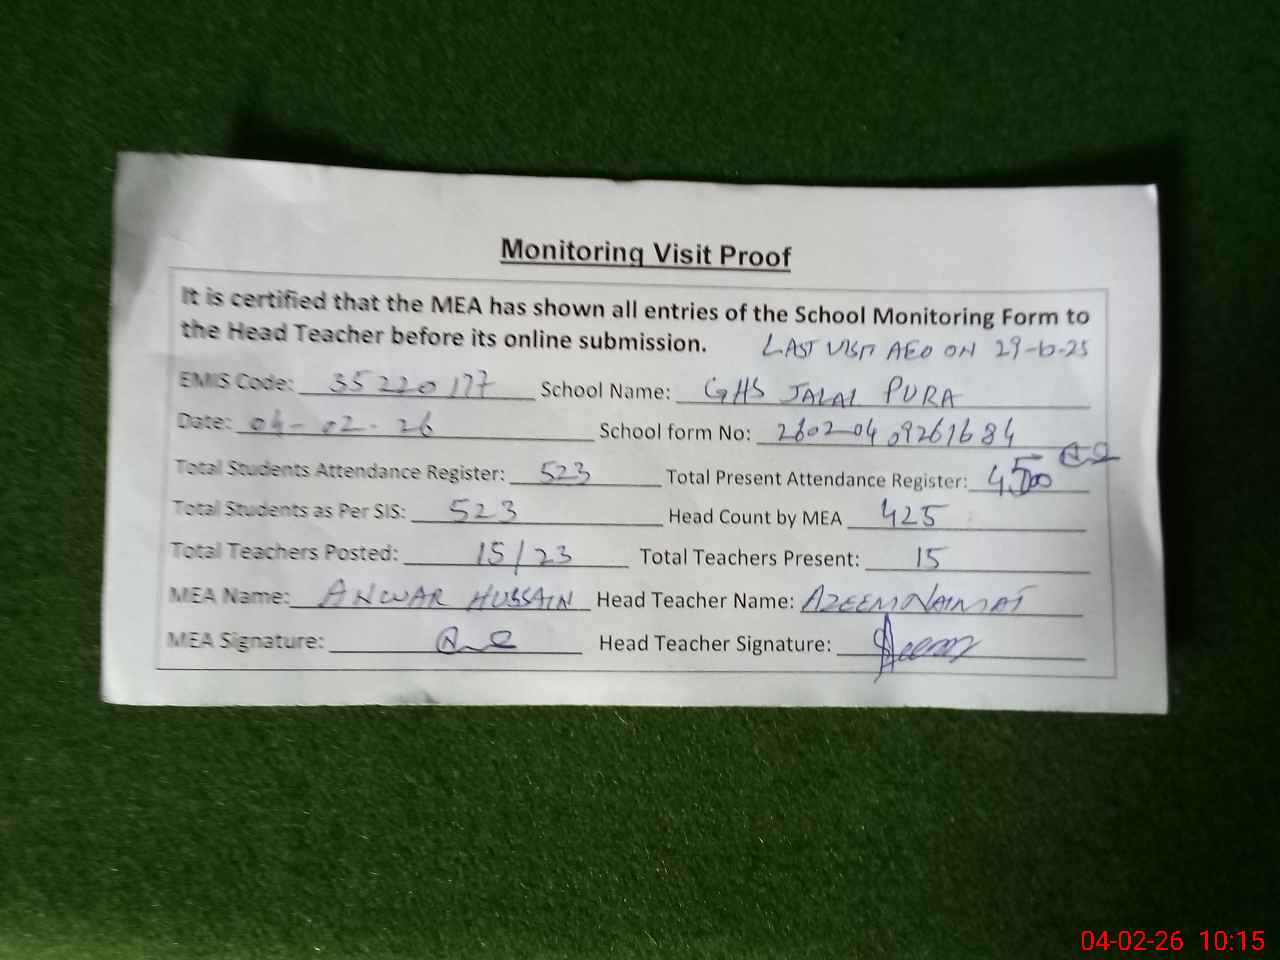 Monitoring Visit Proof
It is certified that the MEA has shown all entries of the School Monitoring Form to
the Head Teacher before its online submission. LAST VISIT AEO ON
EMIS Code: 35220177 School Name: GHS JALAL PURA
Date: 04-02-26 School form No: 26020409261684
Total Students Attendance Register: 523 Total Present Attendance Register:
Total Students as Per SIS: 523 Head Count by MEA 425
Total Teachers Posted: 15/23 Total Teachers Present: 15
MEA Name: ANWAR HUSSAIN Head Teacher Name: AZEEM NAIMAT
MEA Signature: Head Teacher Signature:
04-02-26 10:15